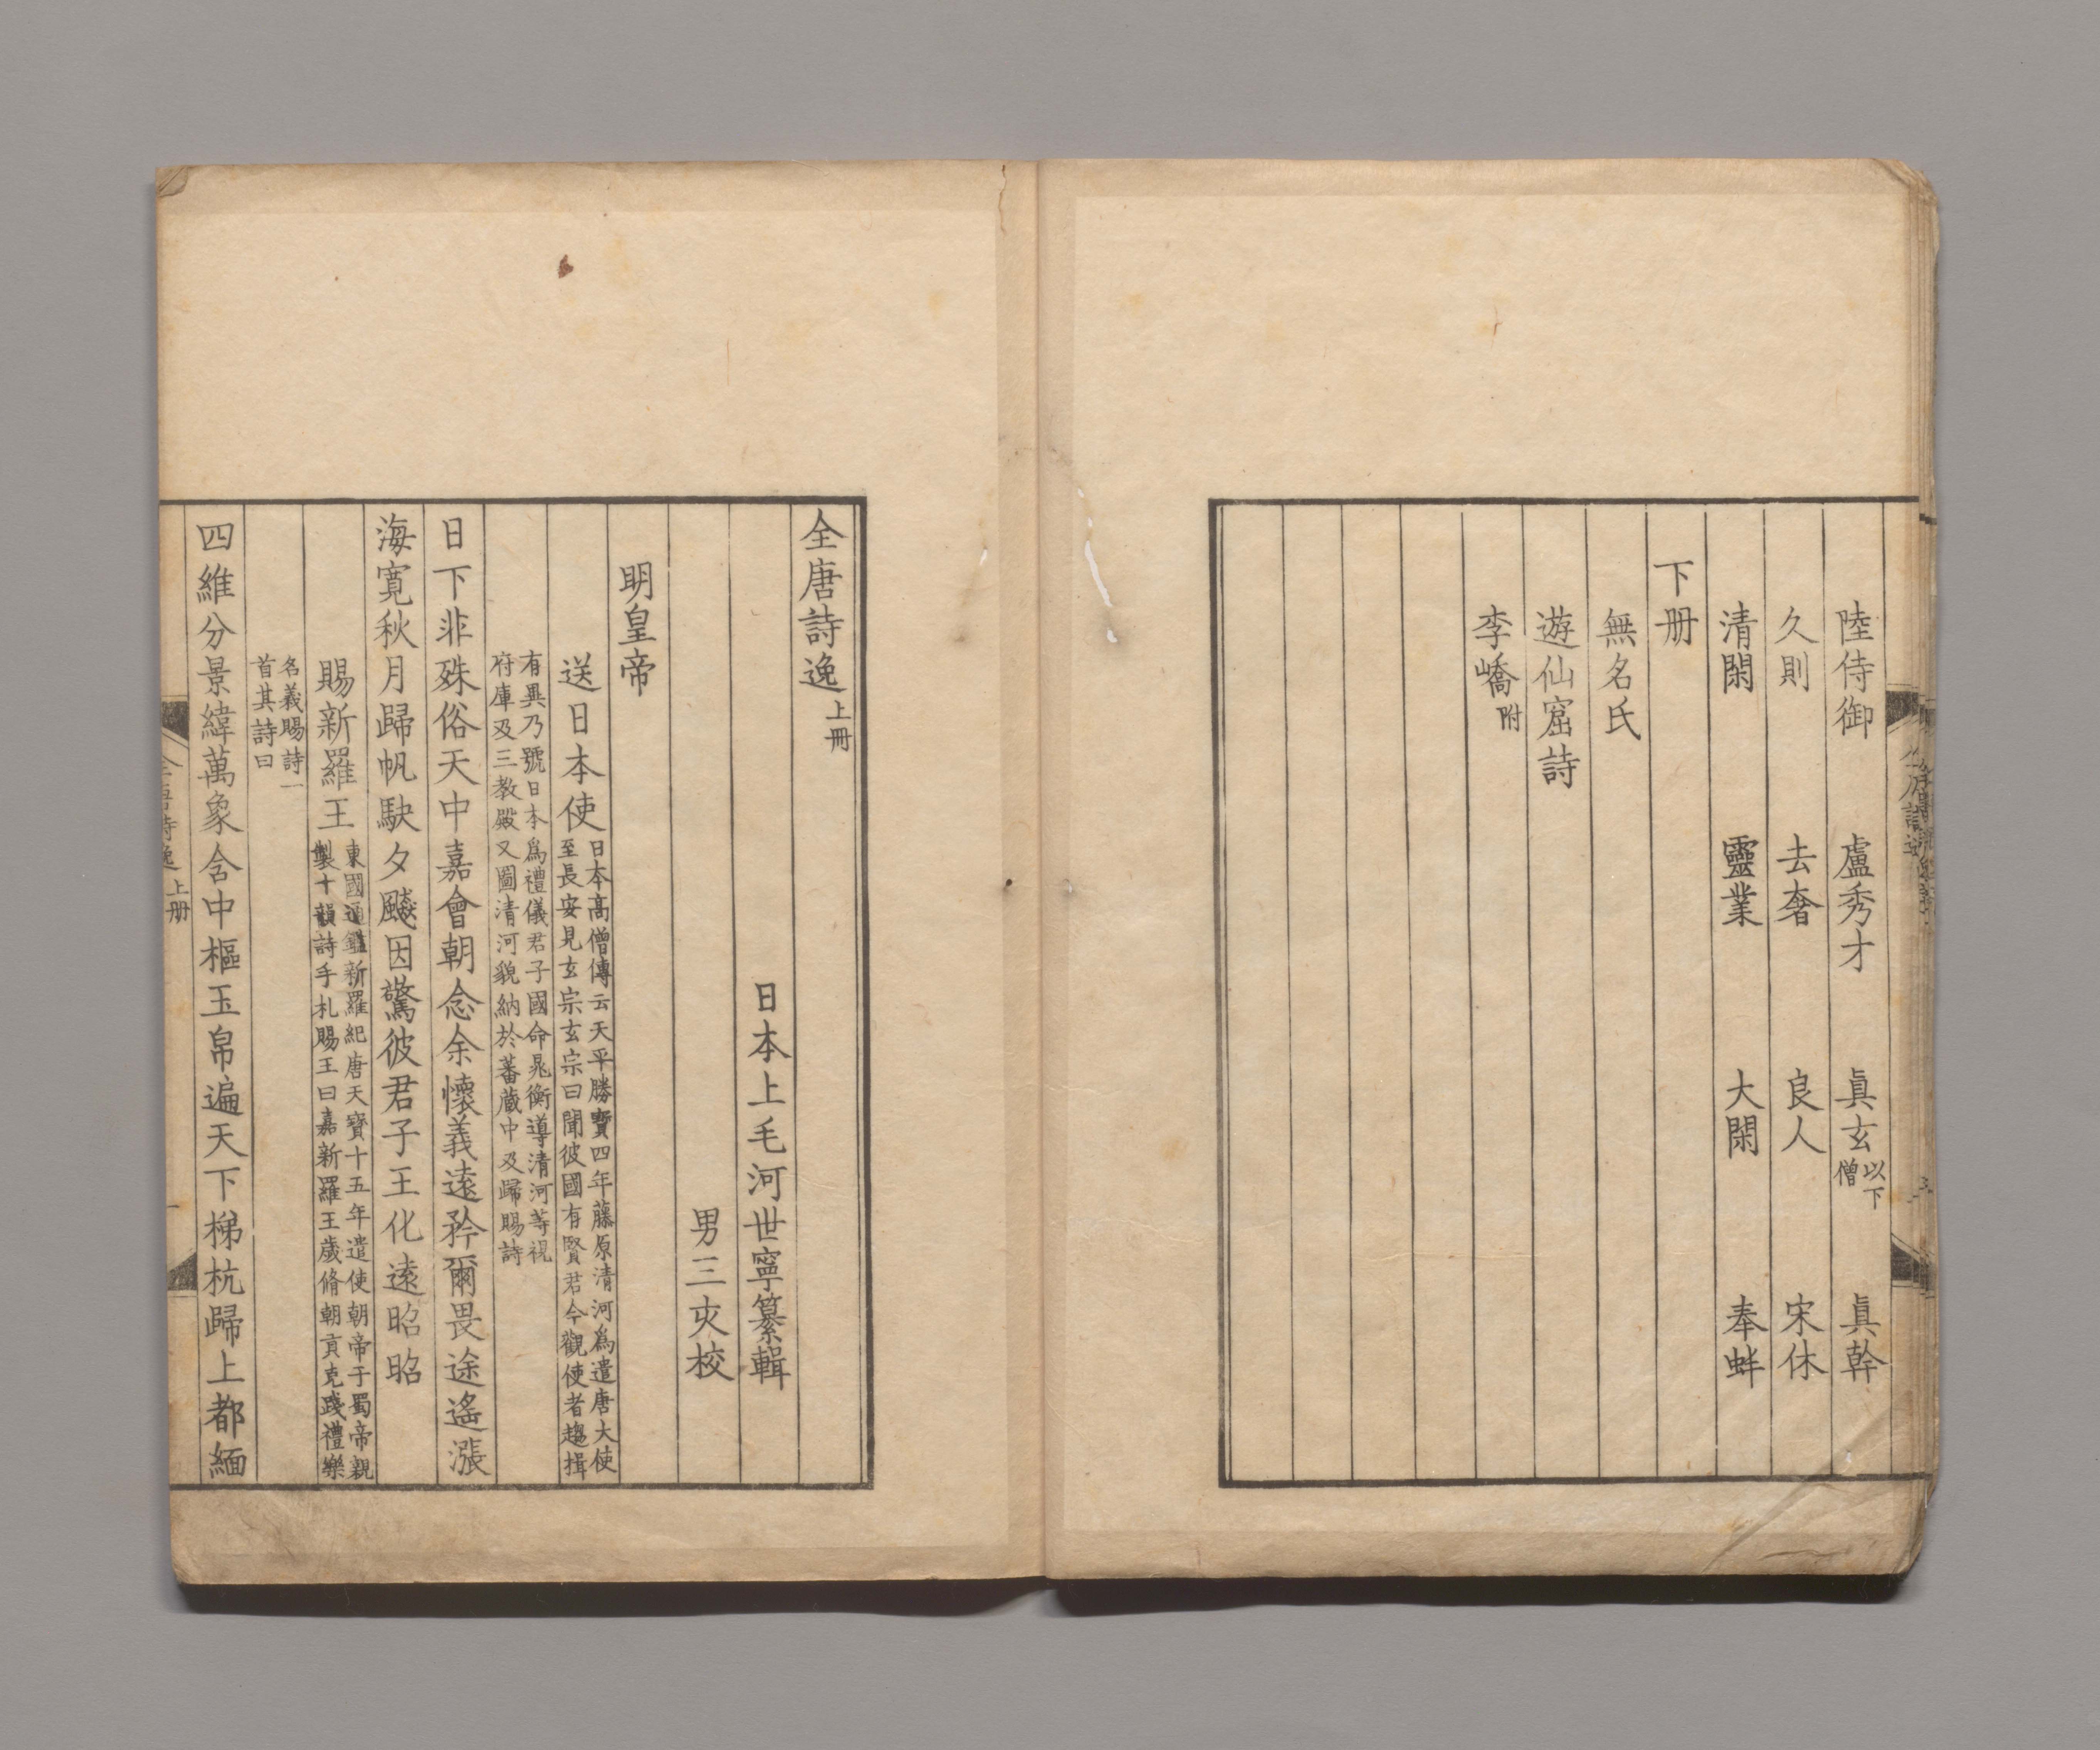 陸侍御　盧秀才　眞玄以下僧　眞幹
久則　去奢　良人　宋休
清閑　靈業　大閑　奉蚌
下册
無名氏
遊仙窟詩
李嶠附
全唐詩逸上冊
日本上毛河世寧纂輯
男三亥校
明皇帝
送日本使
日本高僧傳云天平勝寶四年藤原清河爲遣唐大使
至長安見玄宗玄宗曰聞彼國有賢君今觀使者趨揖
有異乃號日本爲禮儀君子國命晁衡導清河等視
府庫及三教殿又圖清河貌納於蕃藏中及歸賜詩
日下非殊俗天中嘉會朝念余懷義遠矜爾畏途遙漲
海寬秋月歸帆駃夕飈因驚彼君子王化遠昭昭
賜新羅王
東國通鑑新羅紀唐天寶十五年遣使朝帝于蜀帝親
製十韻詩手札賜王曰嘉新羅王歲脩朝貢克踐禮樂
名義賜詩一
首其詩曰
四維分景緯萬象含中樞玉帛遍天下梯杭歸上都緬
上册